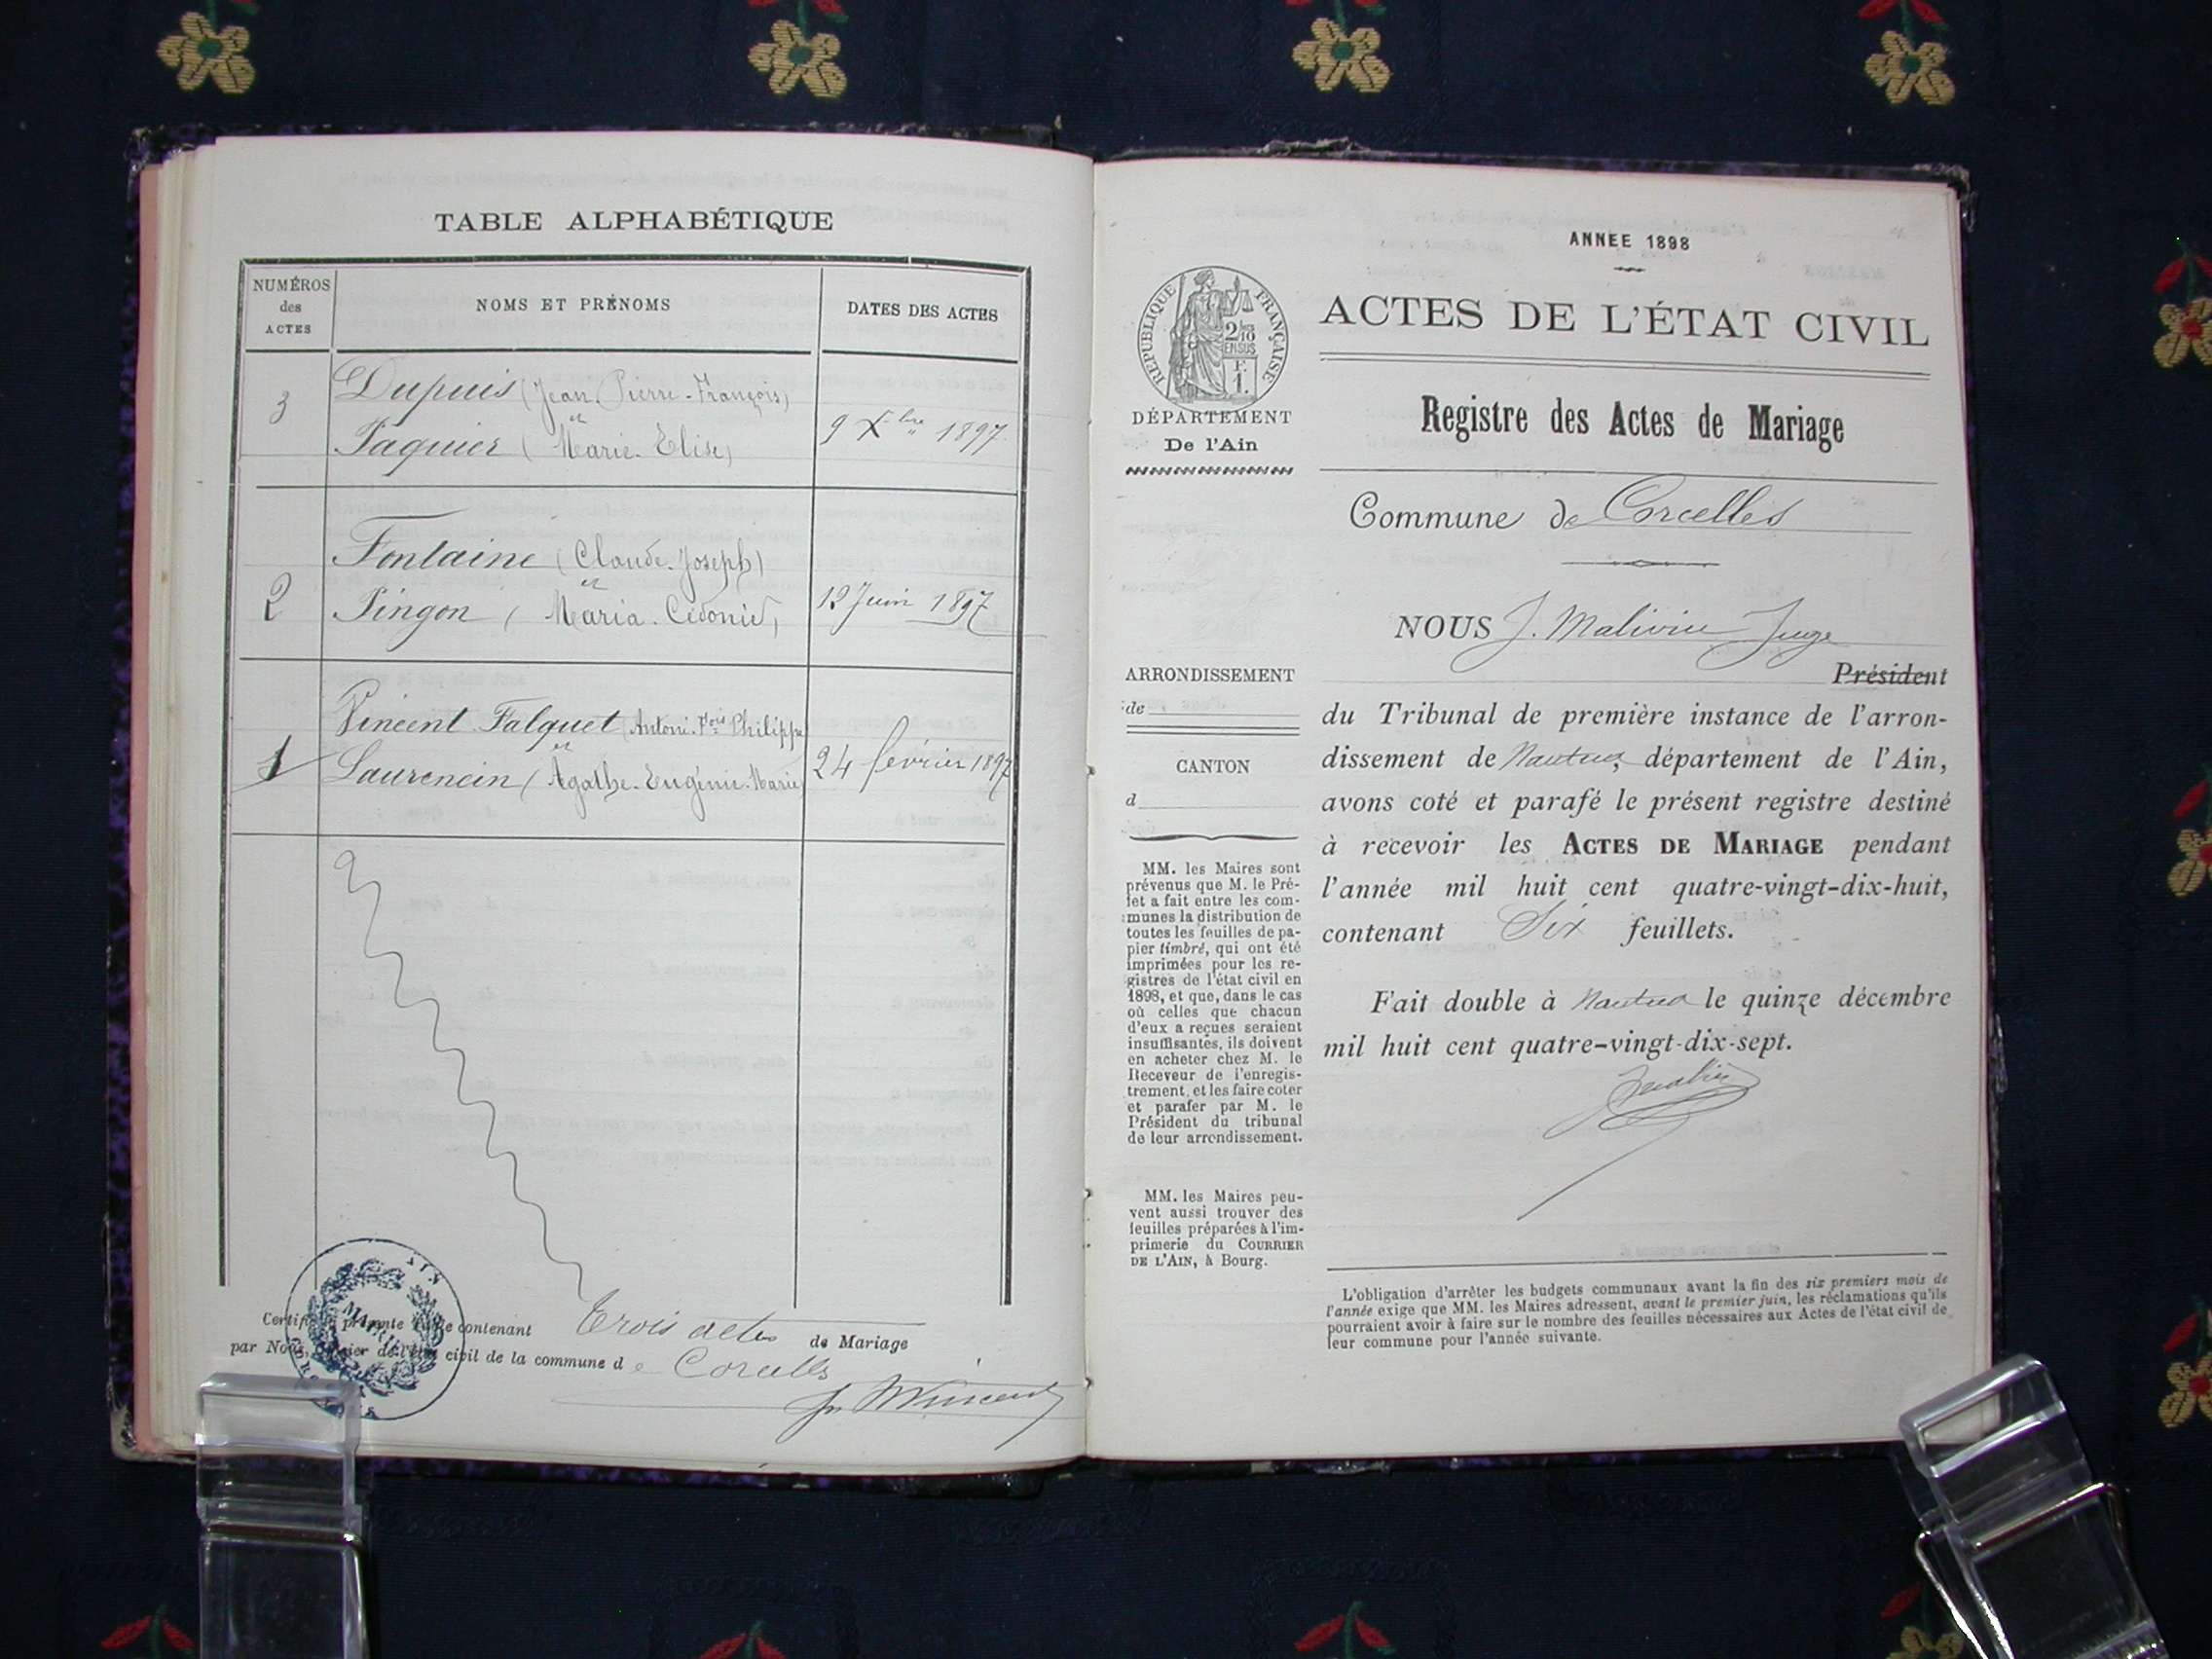 TABLE ALPHABÉTIQUE
NUMÉROS
des
ACTES
NOMS ET PRÉNOMS
DATES DES ACTES
Dupuis (Jean Pierre-François)
et
3
Paquier (Marie-Elise)
9 Xbre 1897
Fontaine (Claude-Joseph)
et
2
Pingon (Maria-Cidonie)
12 Juin 1897
Vincent Falquet (Antoni-Fois Philippe
et
1
Laurencin (Agathe-Eugénie-Marie)
24 février 1897
Certifié la présente Table contenant Trois actes de Mariage
par Nous, officier de l'état civil de la commune de Corcelles
MAIRIE
AIN
ANNEE 1898
REPUBLIQUE FRANÇAISE
2/10
EN SUS
F.
1.
ACTES DE L'ÉTAT CIVIL
DÉPARTEMENT
De l'Ain
Registre des Actes de Mariage
Commune de Corcelles
NOUS J. Malivin Juge
ARRONDISSEMENT
de
CANTON
d
Président
du Tribunal de première instance de l'arron-
dissement de Nantua, département de l'Ain,
avons coté et parafé le présent registre destiné
à recevoir les ACTES DE MARIAGE pendant
l'année mil huit cent quatre-vingt-dix-huit,
contenant Six feuillets.
Fait double à Nantua le quinze décembre
mil huit cent quatre-vingt-dix-sept.
MM. les Maires sont
prévenus que M. le Pré-
fet a fait entre les com-
munes la distribution de
toutes les feuilles de pa-
pier timbré, qui ont été
imprimées pour les re-
gistres de l'état civil en
1898, et que, dans le cas
où celles que chacun
d'eux a reçues seraient
insuffisantes, ils doivent
en acheter chez M. le
Receveur de l'enregis-
trement, et les faire coter
et parafer par M. le
Président du tribunal
de leur arrondissement.
MM. les Maires peu-
vent aussi trouver des
feuilles préparées à l'im-
primerie du COURRIER
DE L'AIN, à Bourg.
L'obligation d'arrêter les budgets communaux avant la fin des six premiers mois de
l'année exige que MM. les Maires adressent, avant le premier juin, les réclamations qu'ils
pourraient avoir à faire sur le nombre des feuilles nécessaires aux Actes de l'état civil de
leur commune pour l'année suivante.